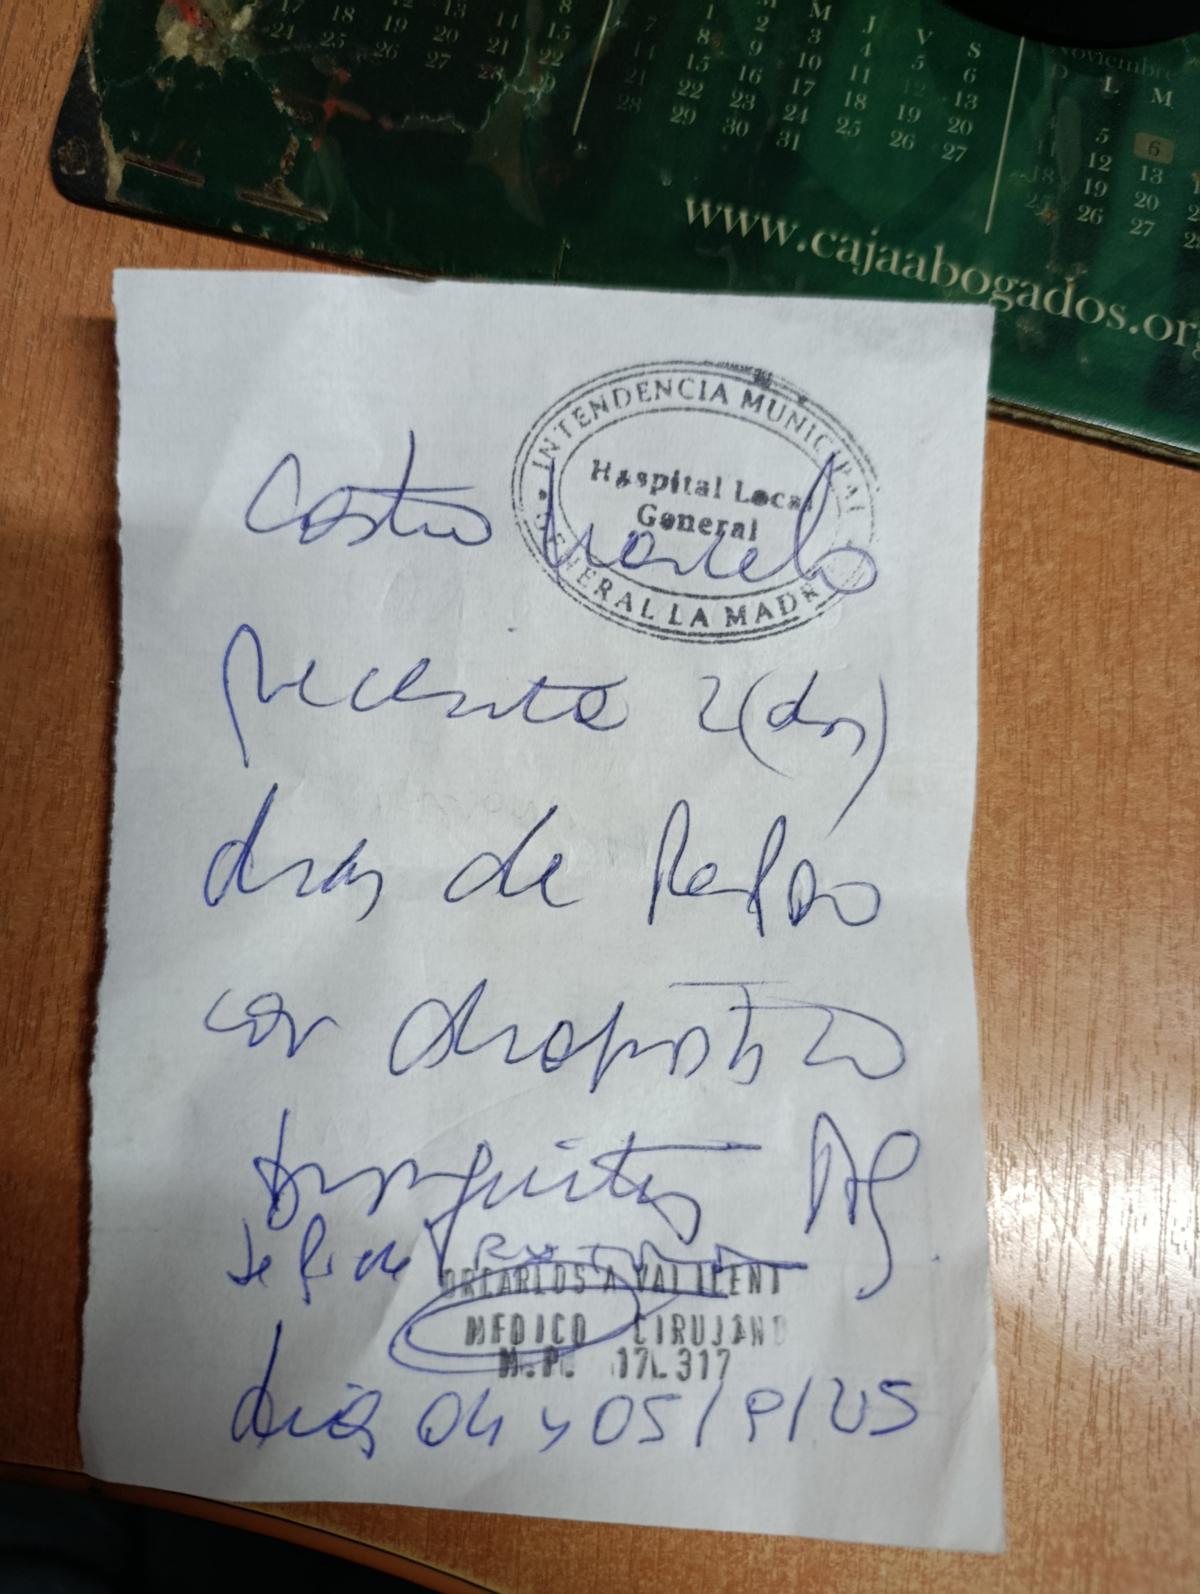 17 18 19 20 21 22
24 25 26 27 28 29
M M J V S
1 2 3 4 5 6
7 8 9 10 11 12 13
14 15 16 17 18 19 20
21 22 23 24 25 26 27
28 29 30 31
Noviembre
D L M
5 6
11 12 13
18 19 20
25 26 27
www.cajaabogados.org
INTENDENCIA MUNICIPAL
Hospital Local
General
GENERAL LA MADRID
Castro Marcelo
Necesita 2 (dos)
dias de Reposo
con diagnostico
Bronquitis Ag
DR CARLOS A VALICENTI
MEDICO CIRUJANO
M.P. 17317
dias 04 y 05/9/25